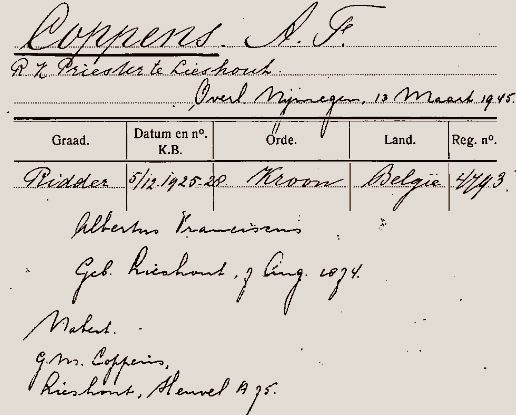 Coppens. A. F.
R K Priester te Lieshout.
Overl Nijmegen, 13 Maart 1945.
Graad. Datum en nº. K.B. Orde. Land. Reg. nº.
Ridder 5/12.1925-28 Kroon België 4793.
Albertus Franciscus
Geb. Lieshout, 7 Aug. 1874.
Nabest.
G.M. Coppens,
Lieshout, Heuvel A 75.